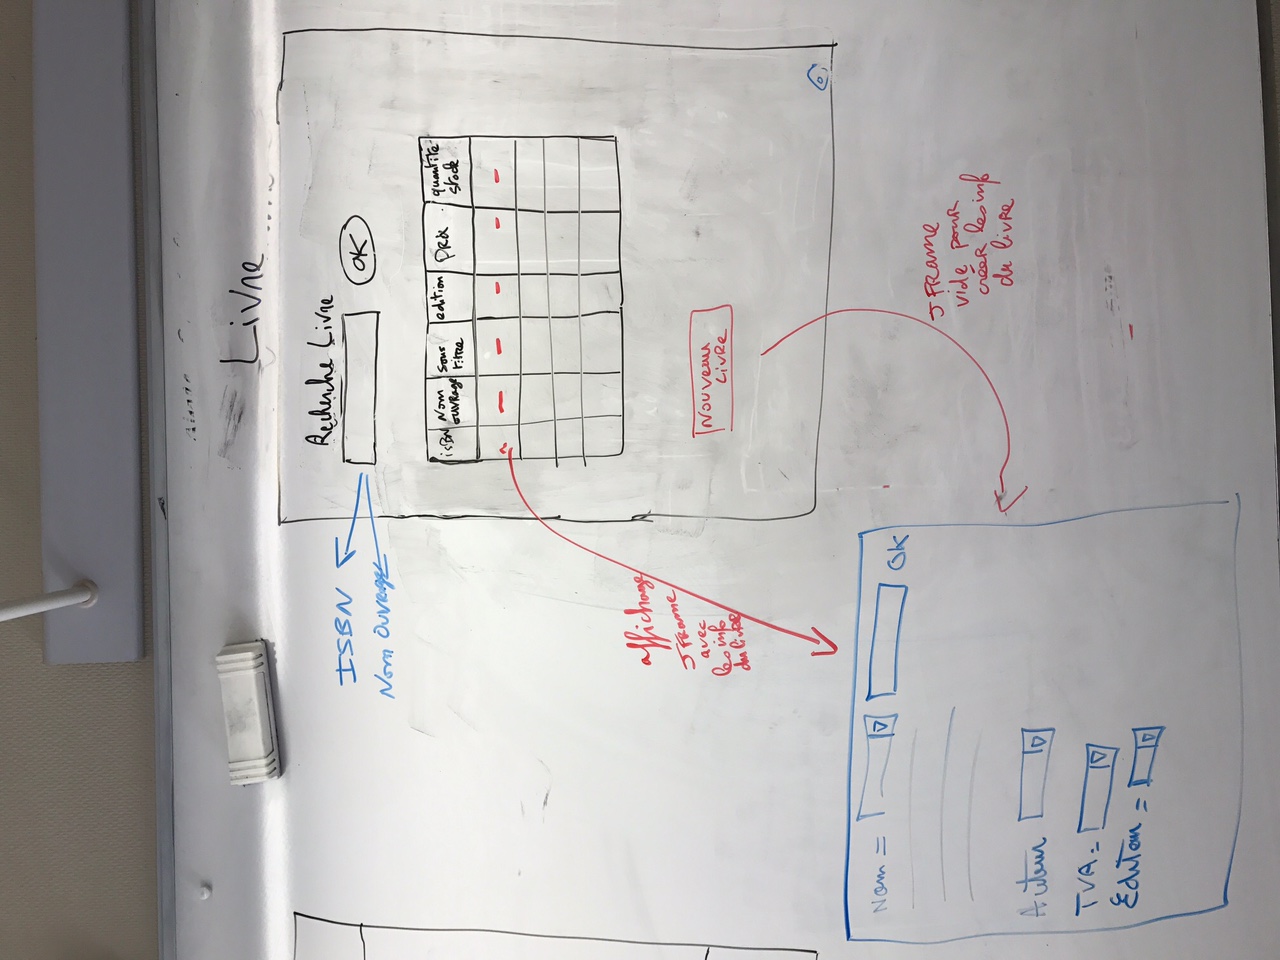 Livre
Recherche Livre
OK
ISBN
Nom Ouvrage
isBN
Nom
ouvrage
sous
titre
edition
PRix
quantite
stock
affichage
JFRame
avec
les info
du livre
Nouveau
LivRe
Nom =
OK
JFRame
vide pouR
créeR les info
du livre
Auteur
TVA =
Editeur =